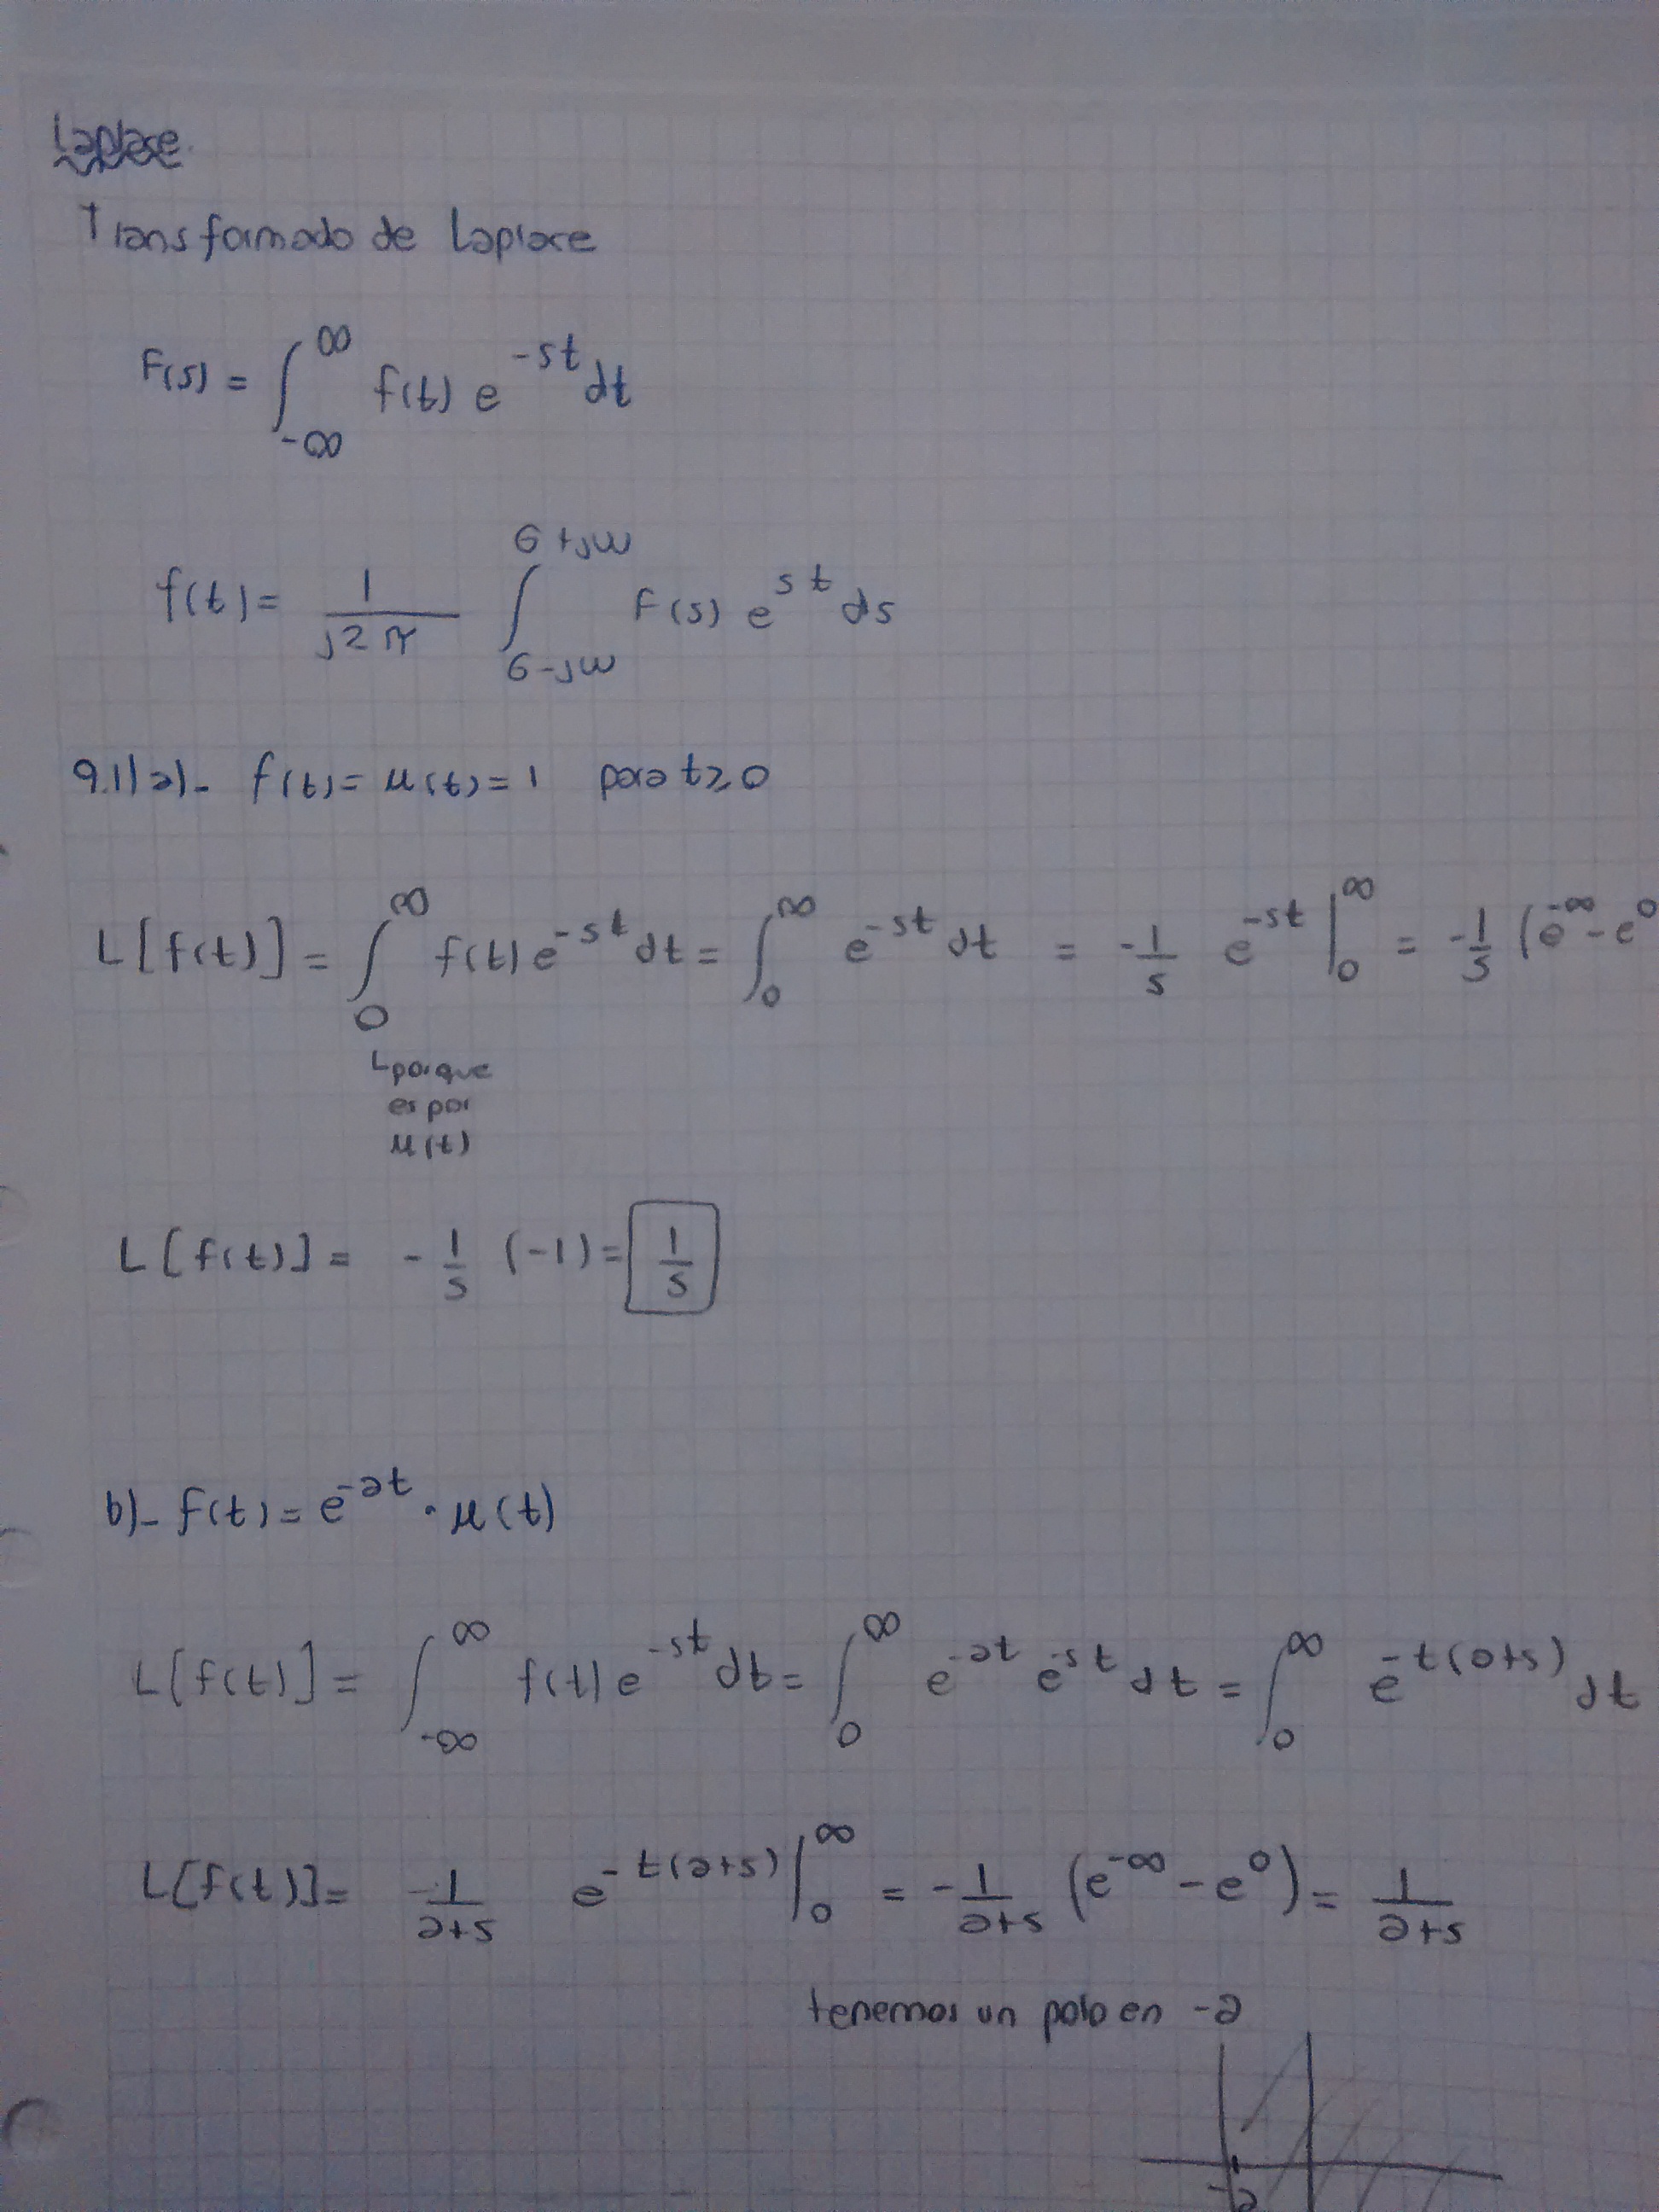 Laplace
Transformada de Laplace
F(s) = ∫_{-∞}^{∞} f(t) e^{-st} dt
f(t) = 1/(j2π) ∫_{σ-jω}^{σ+jω} F(s) e^{st} ds
9.1) a)- f(t) = μ(t) = 1 para t ≥ 0
L[f(t)] = ∫_{0}^{∞} f(t) e^{-st} dt = ∫_{0}^{∞} e^{-st} dt = -1/s e^{-st} |_{0}^{∞} = -1/s (e^{-∞} - e^{0}
porque
es por
μ(t)
L[f(t)] = -1/s (-1) = 1/s
b)- f(t) = e^{-at} · μ(t)
L[f(t)] = ∫_{-∞}^{∞} f(t) e^{-st} dt = ∫_{0}^{∞} e^{-at} e^{-st} dt = ∫_{0}^{∞} e^{-t(a+s)} dt
L[f(t)] = -1/(a+s) e^{-t(a+s)} |_{0}^{∞} = -1/(a+s) (e^{-∞} - e^{0}) = 1/(a+s)
tenemos un polo en -a
-a